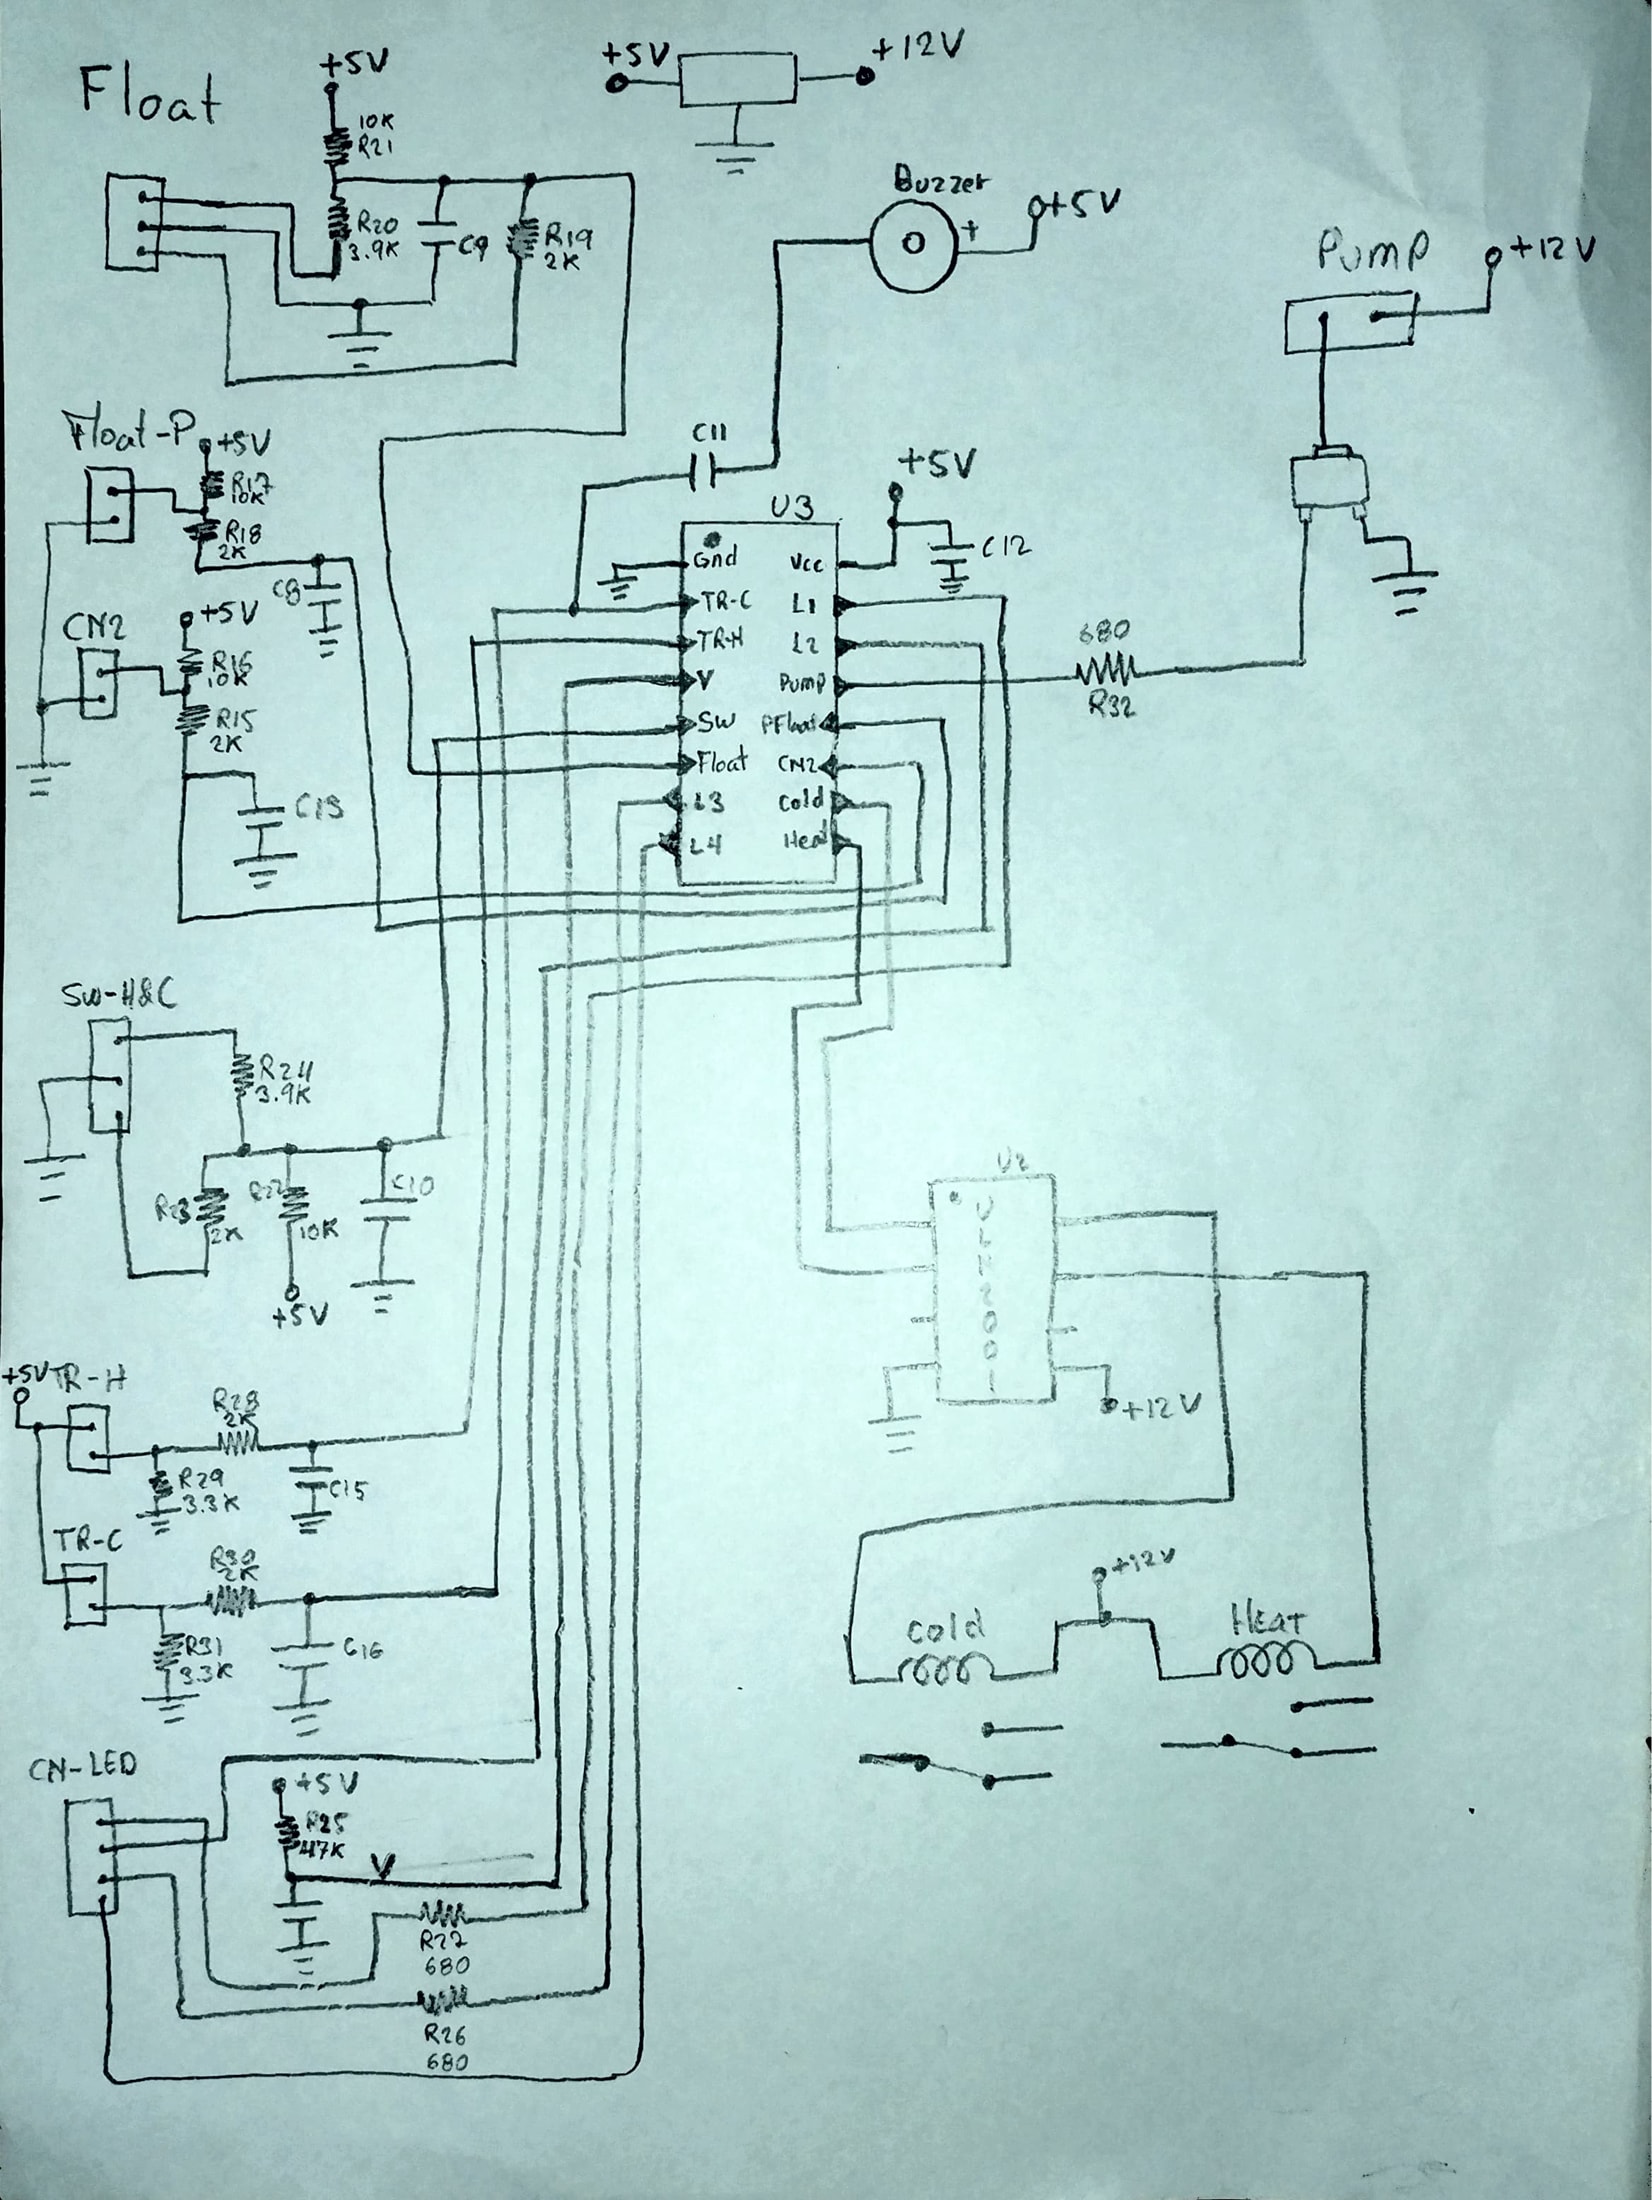 Float
+5V
10K
R21
R20
3.9K
C9
R19
2K
+5V
+12V
Buzzer
+
+5V
Pump
+12V
Float-P
+5V
R17
10K
R18
2K
C8
CN2
+5V
R16
10K
R15
2K
C13
C11
U3
+5V
C12
Gnd
Vcc
TR-C
L1
TR-H
L2
V
Pump
SW
PFloat
Float
CN2
L3
Cold
L4
680
R32
SW-H&C
R24
3.9K
R23
2K
R22
10K
+5V
C10
U2
U
L
N
2
0
0
1
+12V
+5V
TR-H
R28
2K
R29
3.3K
C15
TR-C
R30
2K
R31
3.3K
C16
+12V
Cold
Heat
CN-LED
+5V
R25
47K
V
R27
680
R26
680